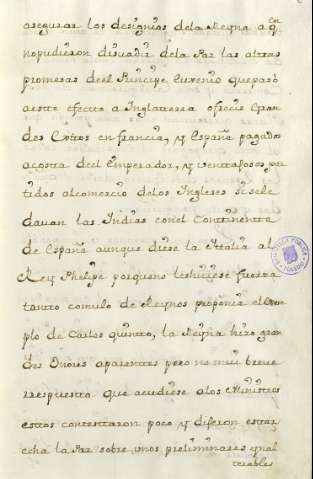 asegurar los designios dela Reyna a qn
nopudieron disuadir dela Paz las altas
promesas deel Principe Eugenio quepasó
aeste efecto a Inglaterra ofreciò Gran
des Exttos en francia, y España pagados
acosta deel Emperador, y ventajosos par
tidos alcomercio delos Ingleses sisele
dauan las Indias conel Continente
de España aunque diese la Ittalia al
Rey Phelipe porqueno lehiciese fuerza
tanto comulo de Reynos proponia el exem
plo de Carlos quinto, la Reyna hizo gran
des onores aparentes pero no mui breve
rrespuesta que acudiese alos Ministros
estos contestaron poco y dijeron estar
echa la Paz sobre unos preliminares ynal
terables